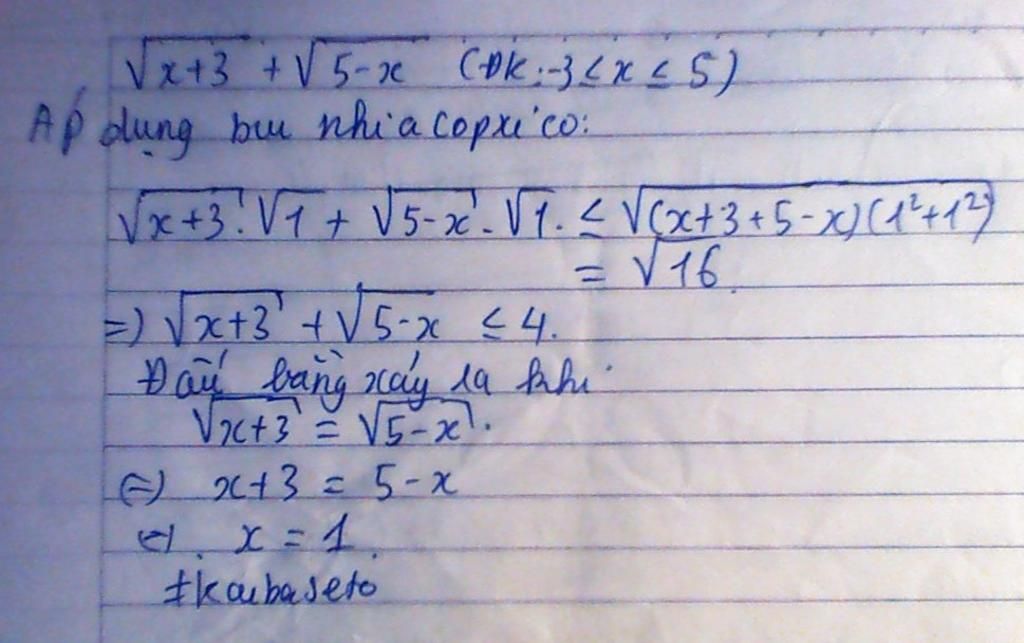 √x+3 + √5-x (ĐK:-3≤x≤5)
Áp dụng bu nhi a cop xi co:
√x+3.√1 + √5-x.√1. ≤ √(x+3+5-x)(1²+1²)
= √16.
=) √x+3 + √5-x ≤ 4.
Dấu bằng xảy ra khi
√x+3 = √5-x.
(=) x+3 = 5-x
(=). x = 1.
#kaubaseto